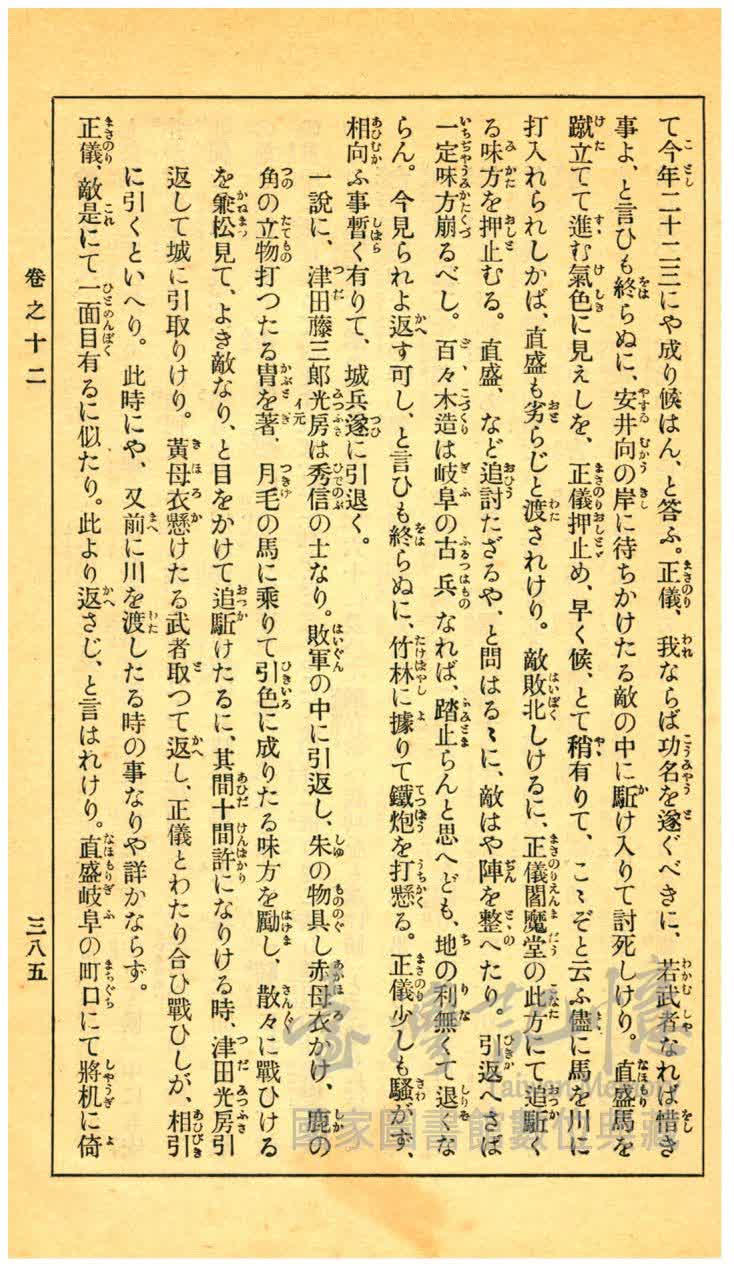 て今年二十二三にや成り候はん、と答ふ。正儀、我ならば功名を遂ぐべきに、若武者なれば惜き
事よ、と言ひも終らぬに、安井向の岸に待ちかけたる敵の中に駈け入りて討死しけり。直盛馬を
蹴立てて進む氣色に見えしを、正儀押止め、早く候、とて稍有りて、こゝぞと云ふ儘に馬を川に
打入れられしかば、直盛も劣らじと渡されけり。敵敗北しけるに、正儀閻魔堂の此方にて追駈く
る味方を押止むる。直盛、など追討たざるや、と問はるゝに、敵はや陣を整へたり。引返へさば
一定味方崩るべし。百々木造は岐阜の古兵なれば、踏止らんと思へども、地の利無くて退くな
らん。今見られよ返す可し、と言ひも終らぬに、竹林に據りて鐵炮を打懸る。正儀少しも騷がず、
相向ふ事暫く有りて、城兵遂に引退く。
一說に、津田藤三郞光房は秀信の士なり。敗軍の中に引返し、朱の物具し赤母衣かけ、鹿の
イ元
角の立物打つたる冑を著、月毛の馬に乘りて引色に成りたる味方を勵し、散々に戰ひける
を兼松見て、よき敵なり、と目をかけて追駈けたるに、其間十間許になりける時、津田光房引
返して城に引取りけり。黃母衣懸けたる武者取つて返し、正儀とわたり合ひ戰ひしが、相引
に引くといへり。此時にや、又前に川を渡したる時の事なりや詳かならず。
正儀、敵是にて一面目有るに似たり。此より返さじ、と言はれけり。直盛岐阜の町口にて將机に倚
卷之十二
三八五
臺灣記憶
Taiwan Memory
國家圖書館數位典藏